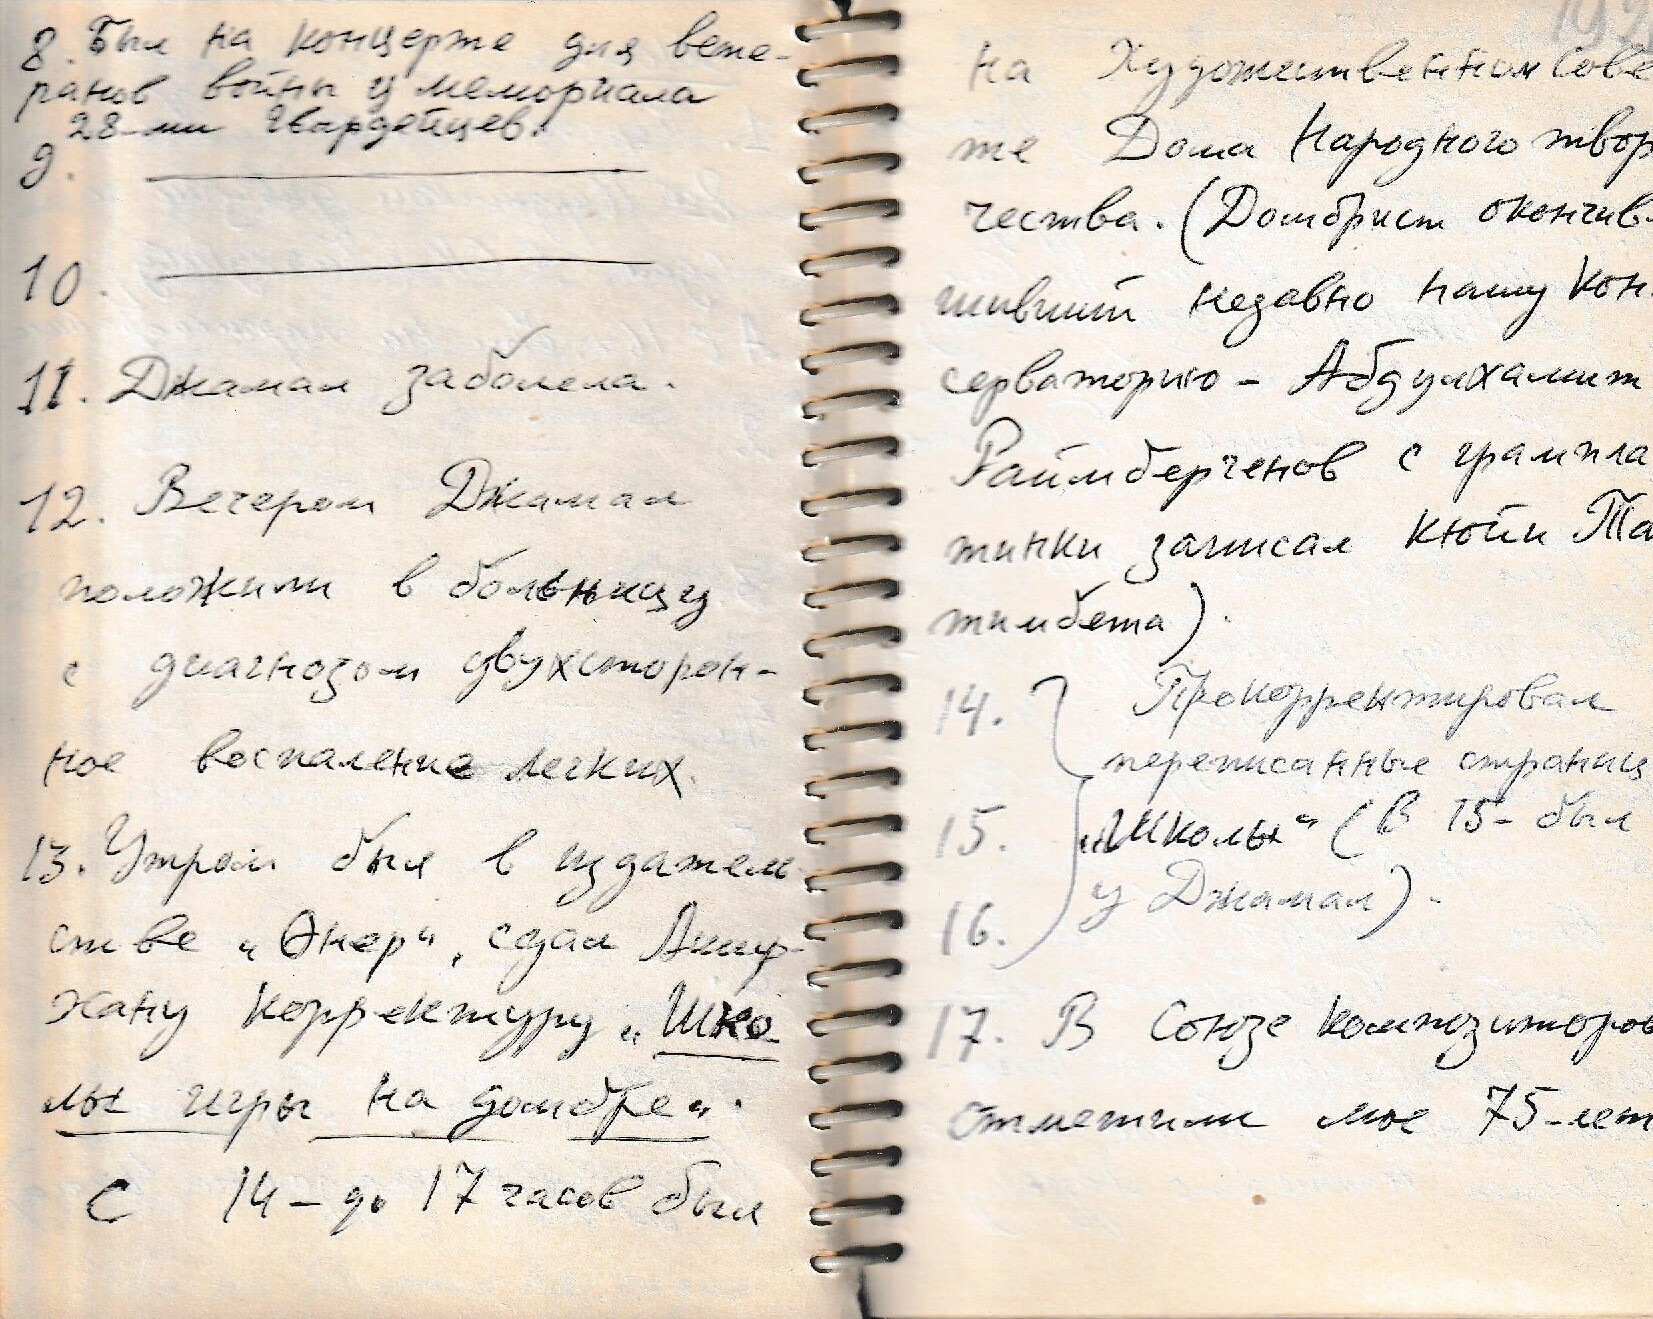 8. Был на концерте для вете-
ранов войны у мемориала
28-ми Гвардейцев.
9.
10.
11. Джамал заболела.
12. Вечером Джамал
положили в больницу
с диагнозом двухсторон-
ное воспаление легких.
13. Утром был в издатель-
стве „Өнер“, сдал Амир-
хану корректуру „Шко-
лы игры на домбре“.
С 14 – до 17 часов был
на Художественном Сове
те Дома Народного твор
чества. (Домбрист окончив-
шивший недавно нашу Кон-
серваторию – Абдулхамит
Раимбергенов с грампла
тинки записал кюйи Та
тимбета).
14. Прокорректировал
переписанные страниц
15. „Школы“ (В 15- был
у Джамал).
16.
17. В Союзе Композиторов
отметили мое 75-лет